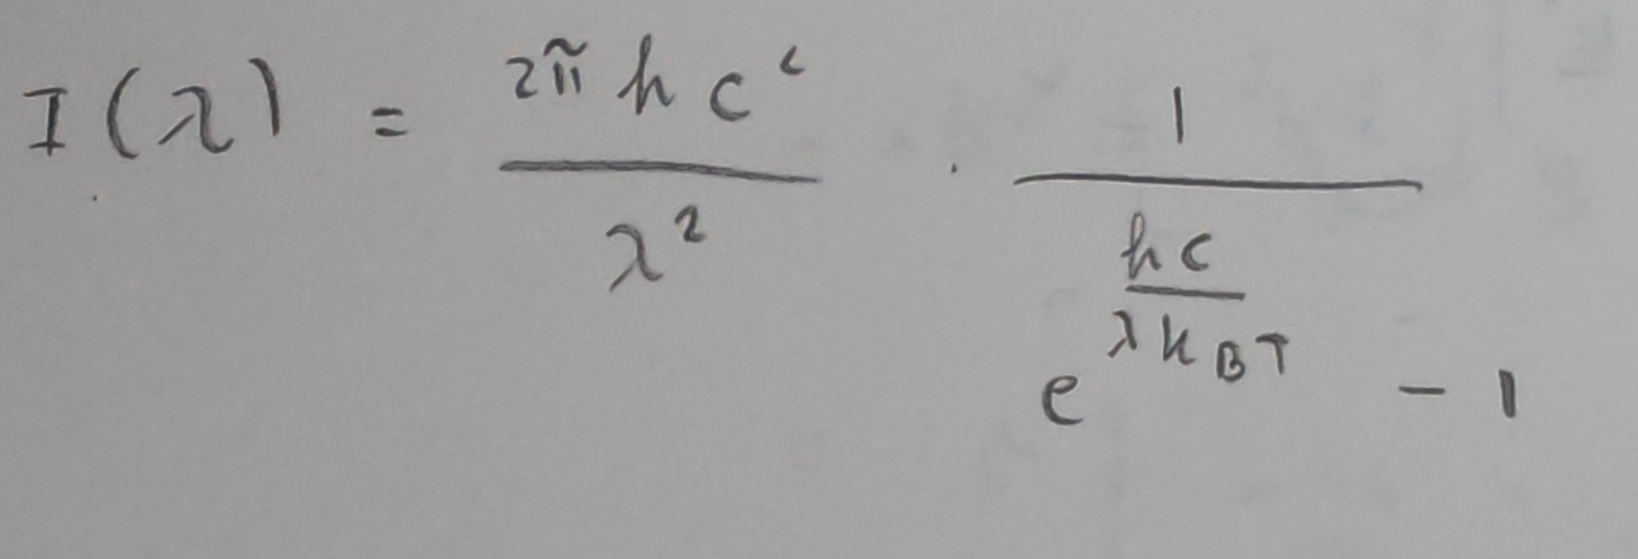 I(λ) = \frac{2π h c^2}{λ^2} · \frac{1}{e^{\frac{hc}{λ k_B T}} - 1}